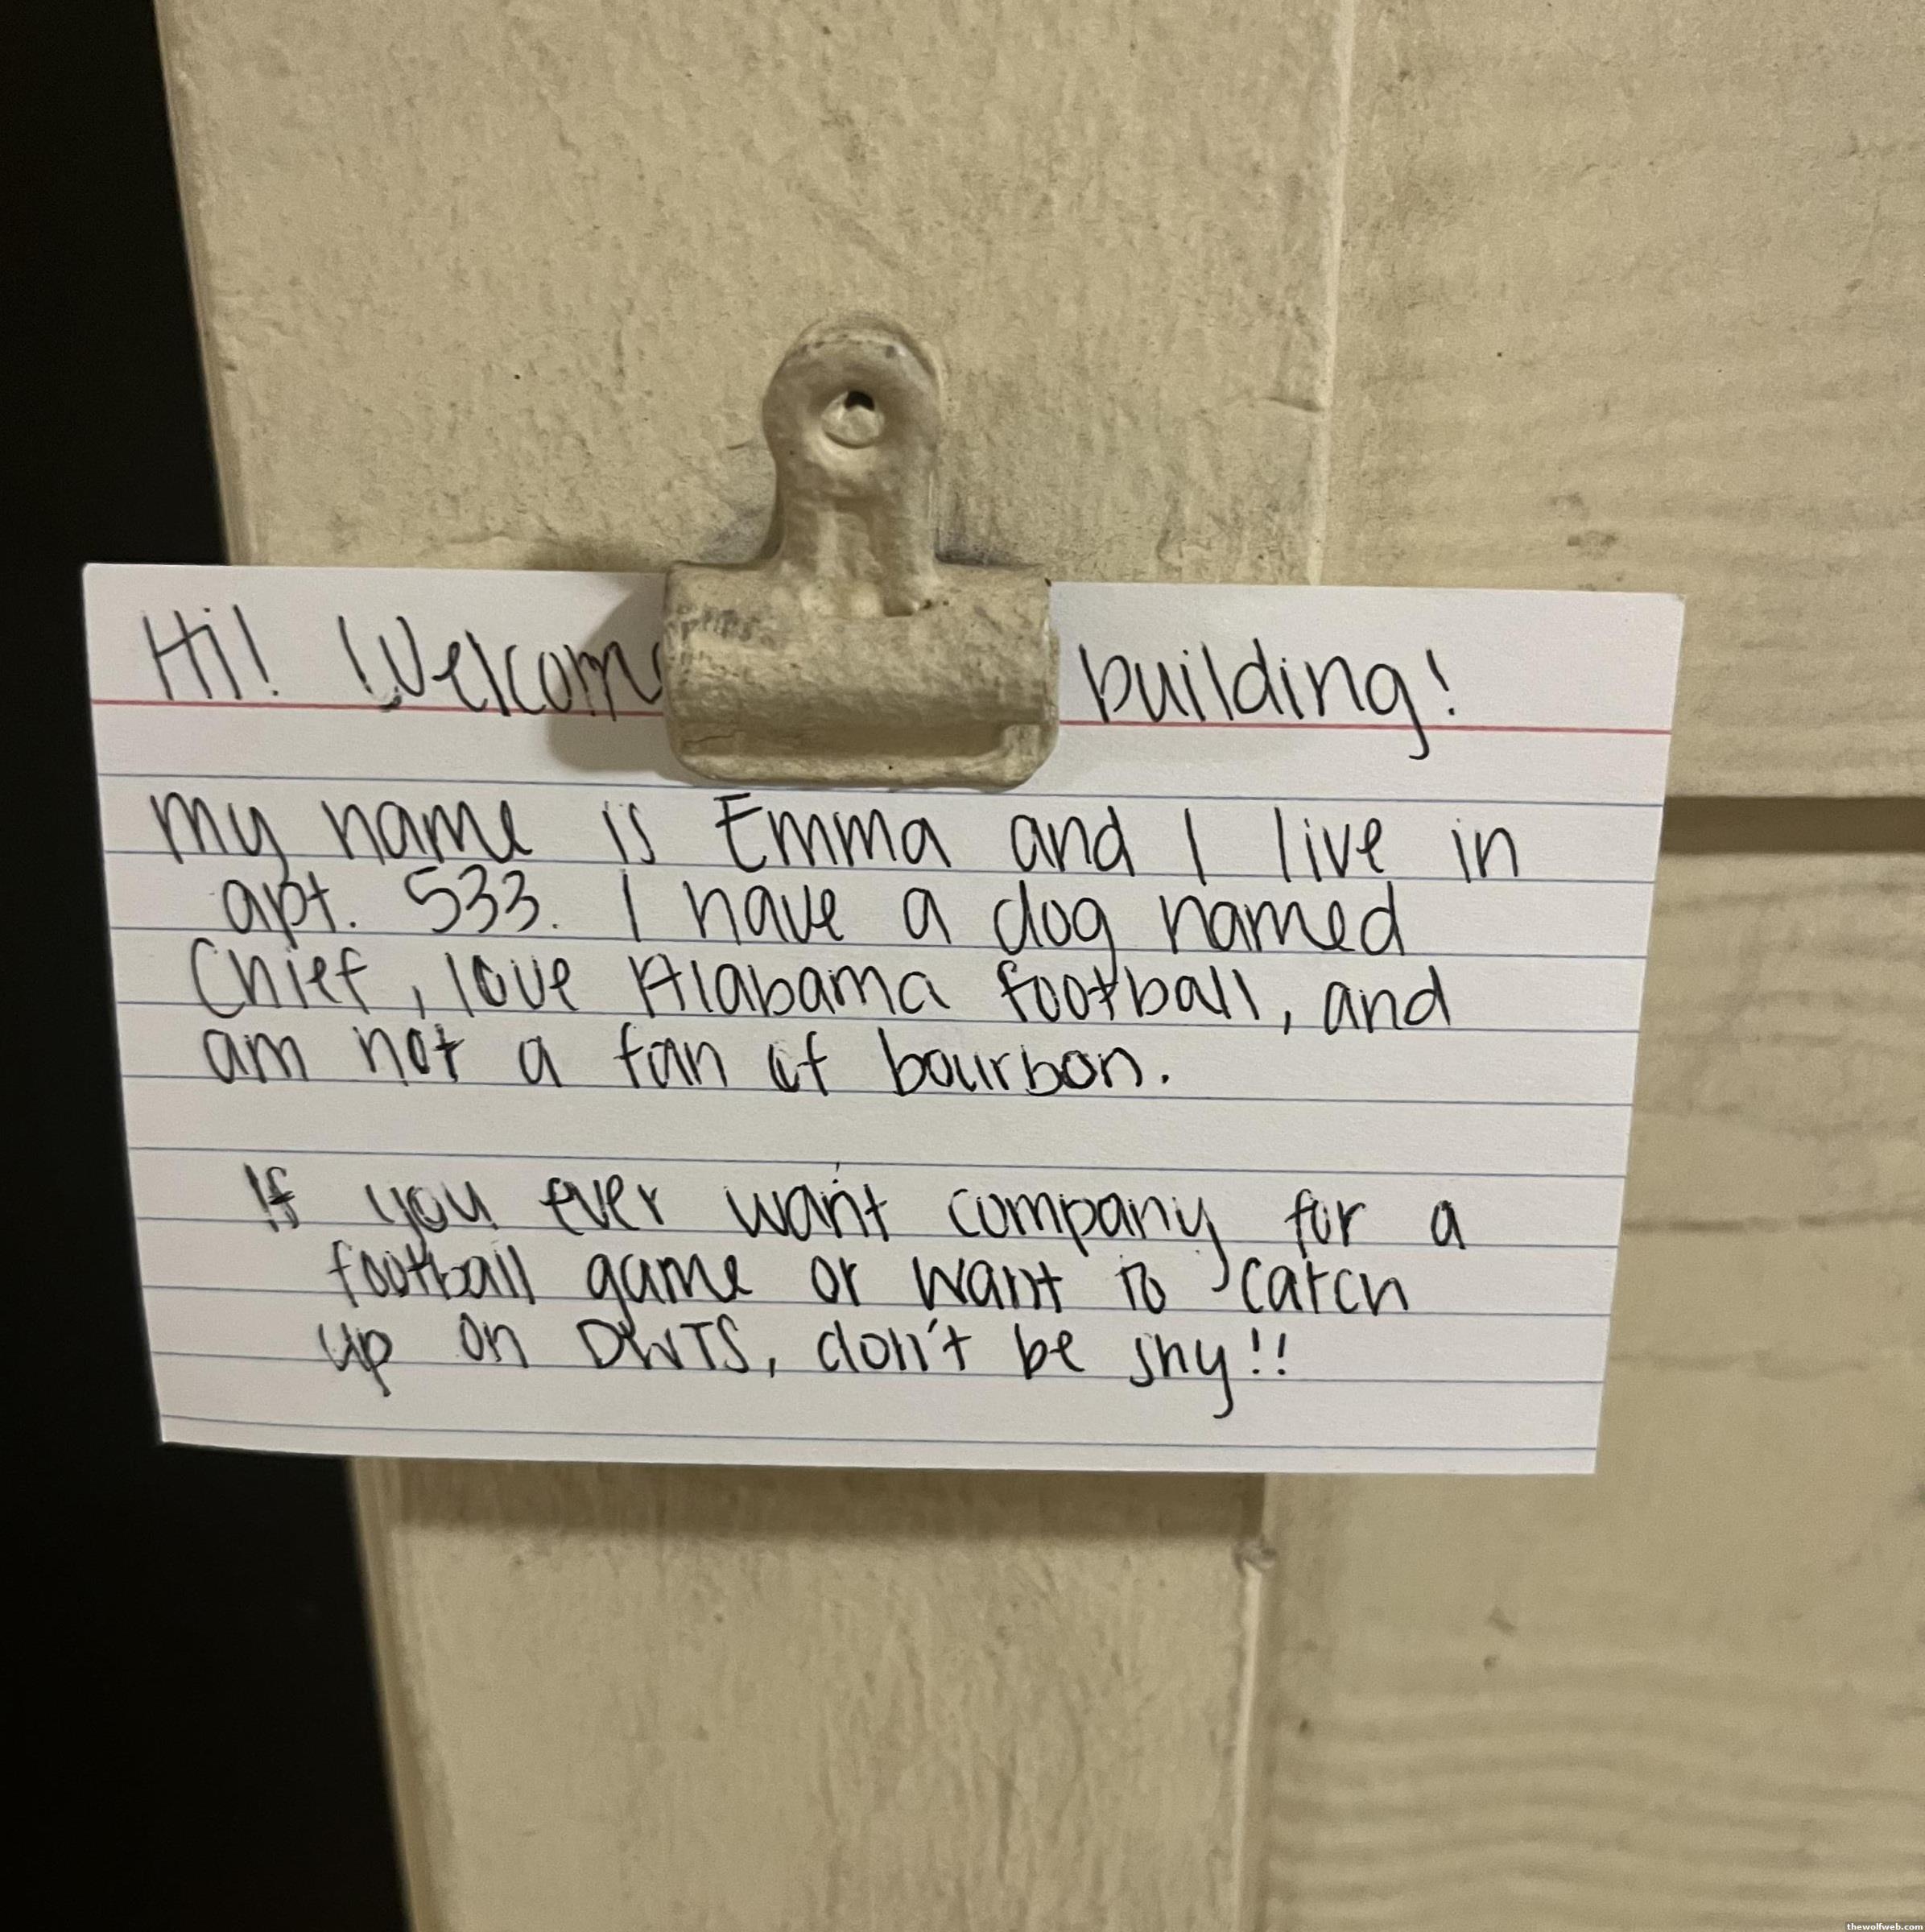 Hi! Welcom building!
My name is Emma and I live in
apt. 533. I have a dog named
Chief, love Alabama football, and
am not a fan of bourbon.
If you ever want company for a
football game or want to catch
up on DWTS, don't be shy!!
thewolfweb.com